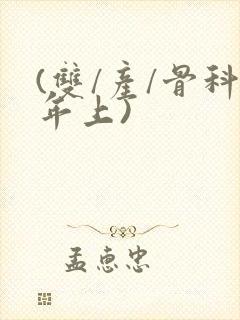 (雙/產/骨科
年上)
孟惠忠